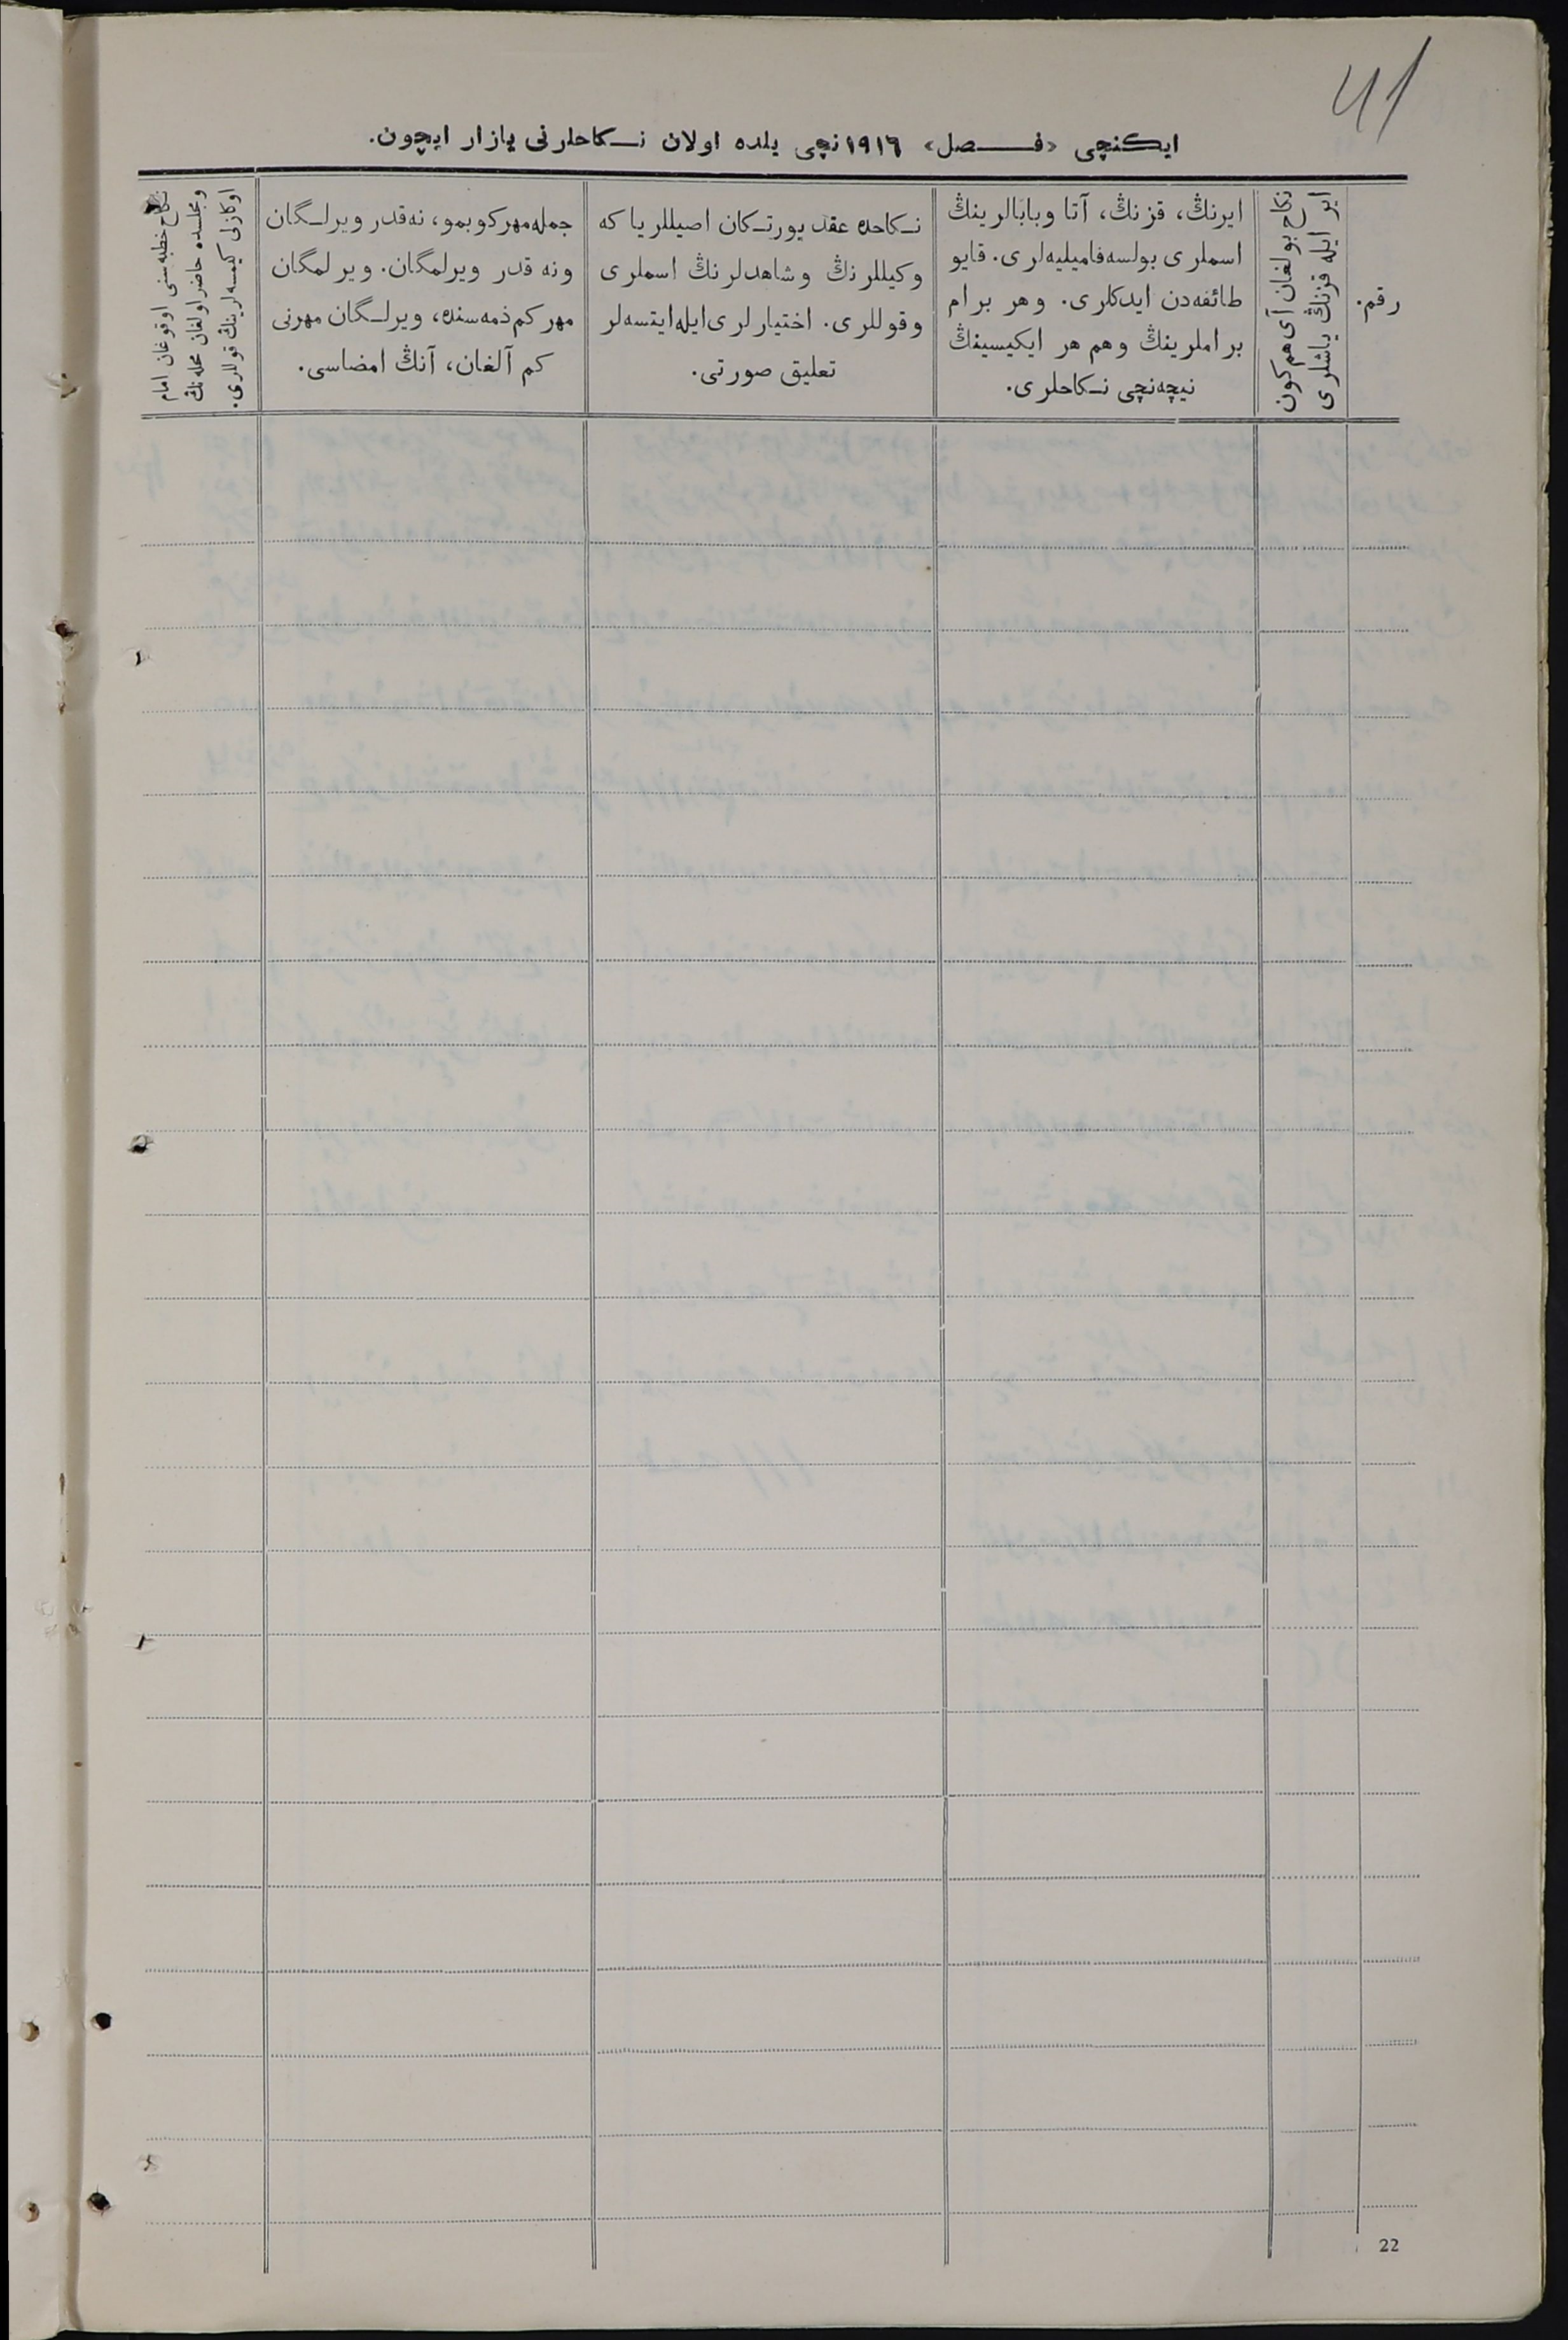 41
ایکنچی «فصل» ١٩١٦نچی یلده اولان نکاحلرنی یازار ایچون.
رقم.
ایر ایله قزنڭ یاشلری
نکاح بولغان آی هم کون
ایرنڭ، قزنڭ، آتا وبابالرینڭ
اسملری بولسه فامیلیه‌لری. قایو
طائفه‌دن ایدکلری. وهر برام
براملرینڭ وهم هر ایکیسینڭ
نیچه‌نچی نکاحلری.
نکاحده عقد یورتکان اصیللر یا که
وکیللرنڭ وشاهدلرنڭ اسملری
وقوللری. اختیارلری ایله ایتسه‌لر
تعلیق صورتی.
جمله مهر کوبمو، نه‌قدر ویرلگان
ونه قدر ویرلمگان. ویرلمگان
مهر کم ذمه‌سنده، ویرلگان مهرنی
کم آلغان، آنڭ امضاسی.
نکاح خطبه‌سنی اوقوغان امام
ومجلسده حاضر اولغان محله‌نڭ
اوکازلی کیمسه‌لرینڭ قوللری.
22